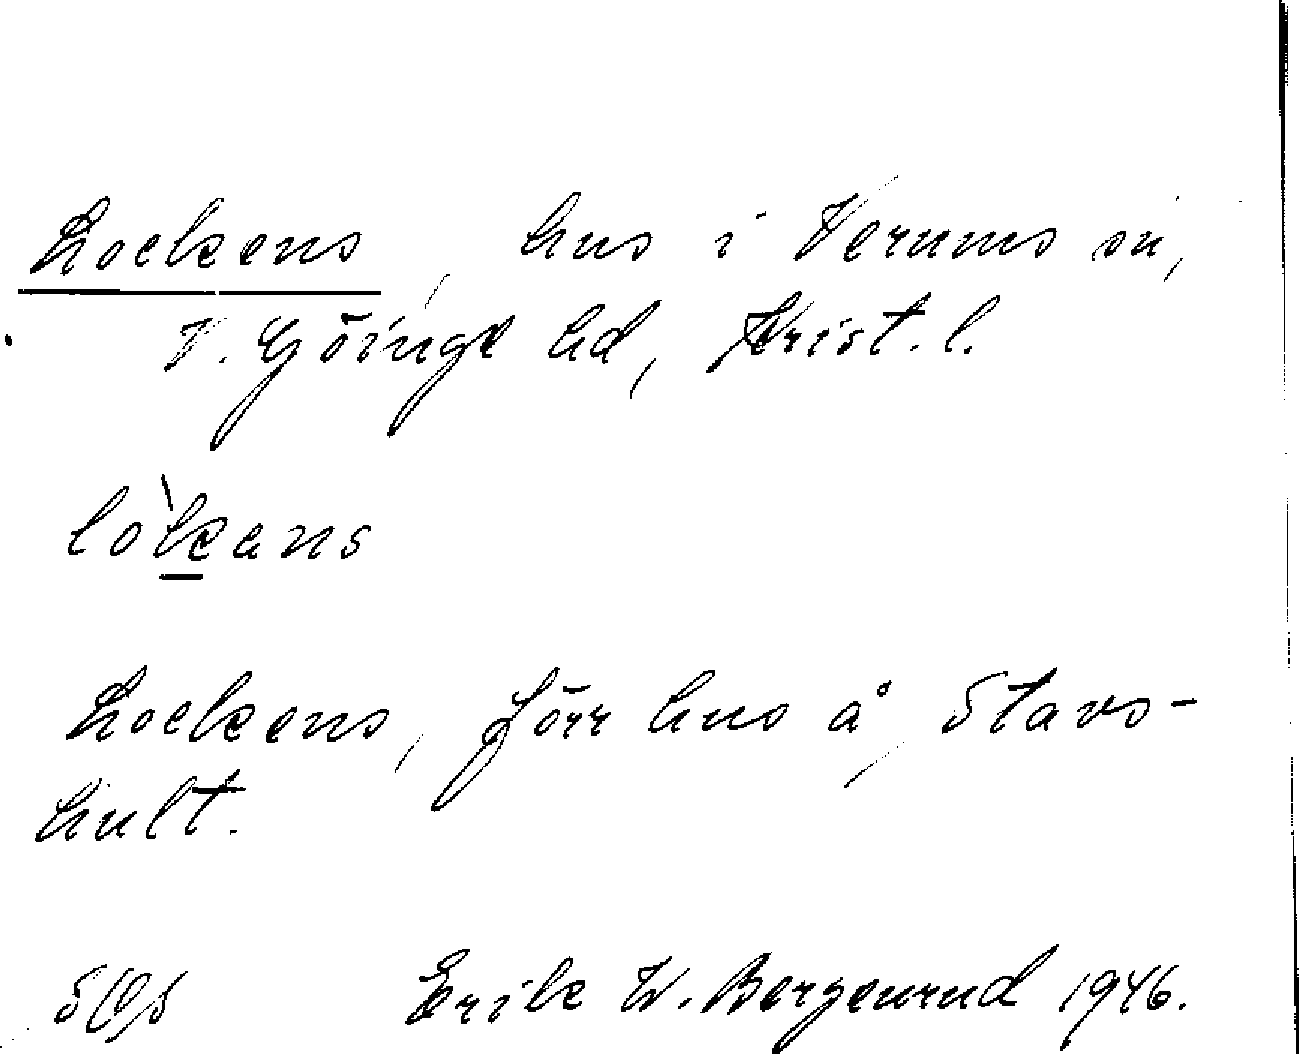 Lockens, hus i Verums sn,
V. Göinge hd, Krist. l.
lòkans
Lockens, förr hus å Stavs-
hult.
Erik W. Bergenrud 1946.